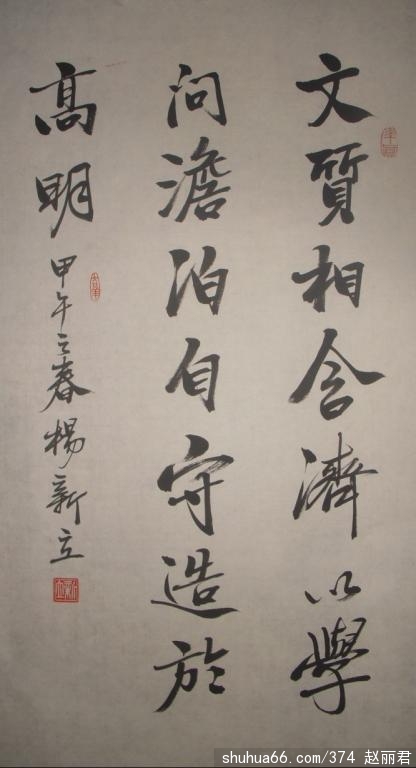 文質相含濟以學
問澹泊自守造於
高明
甲午之春楊新立
shuhua66.com/374 赵丽君